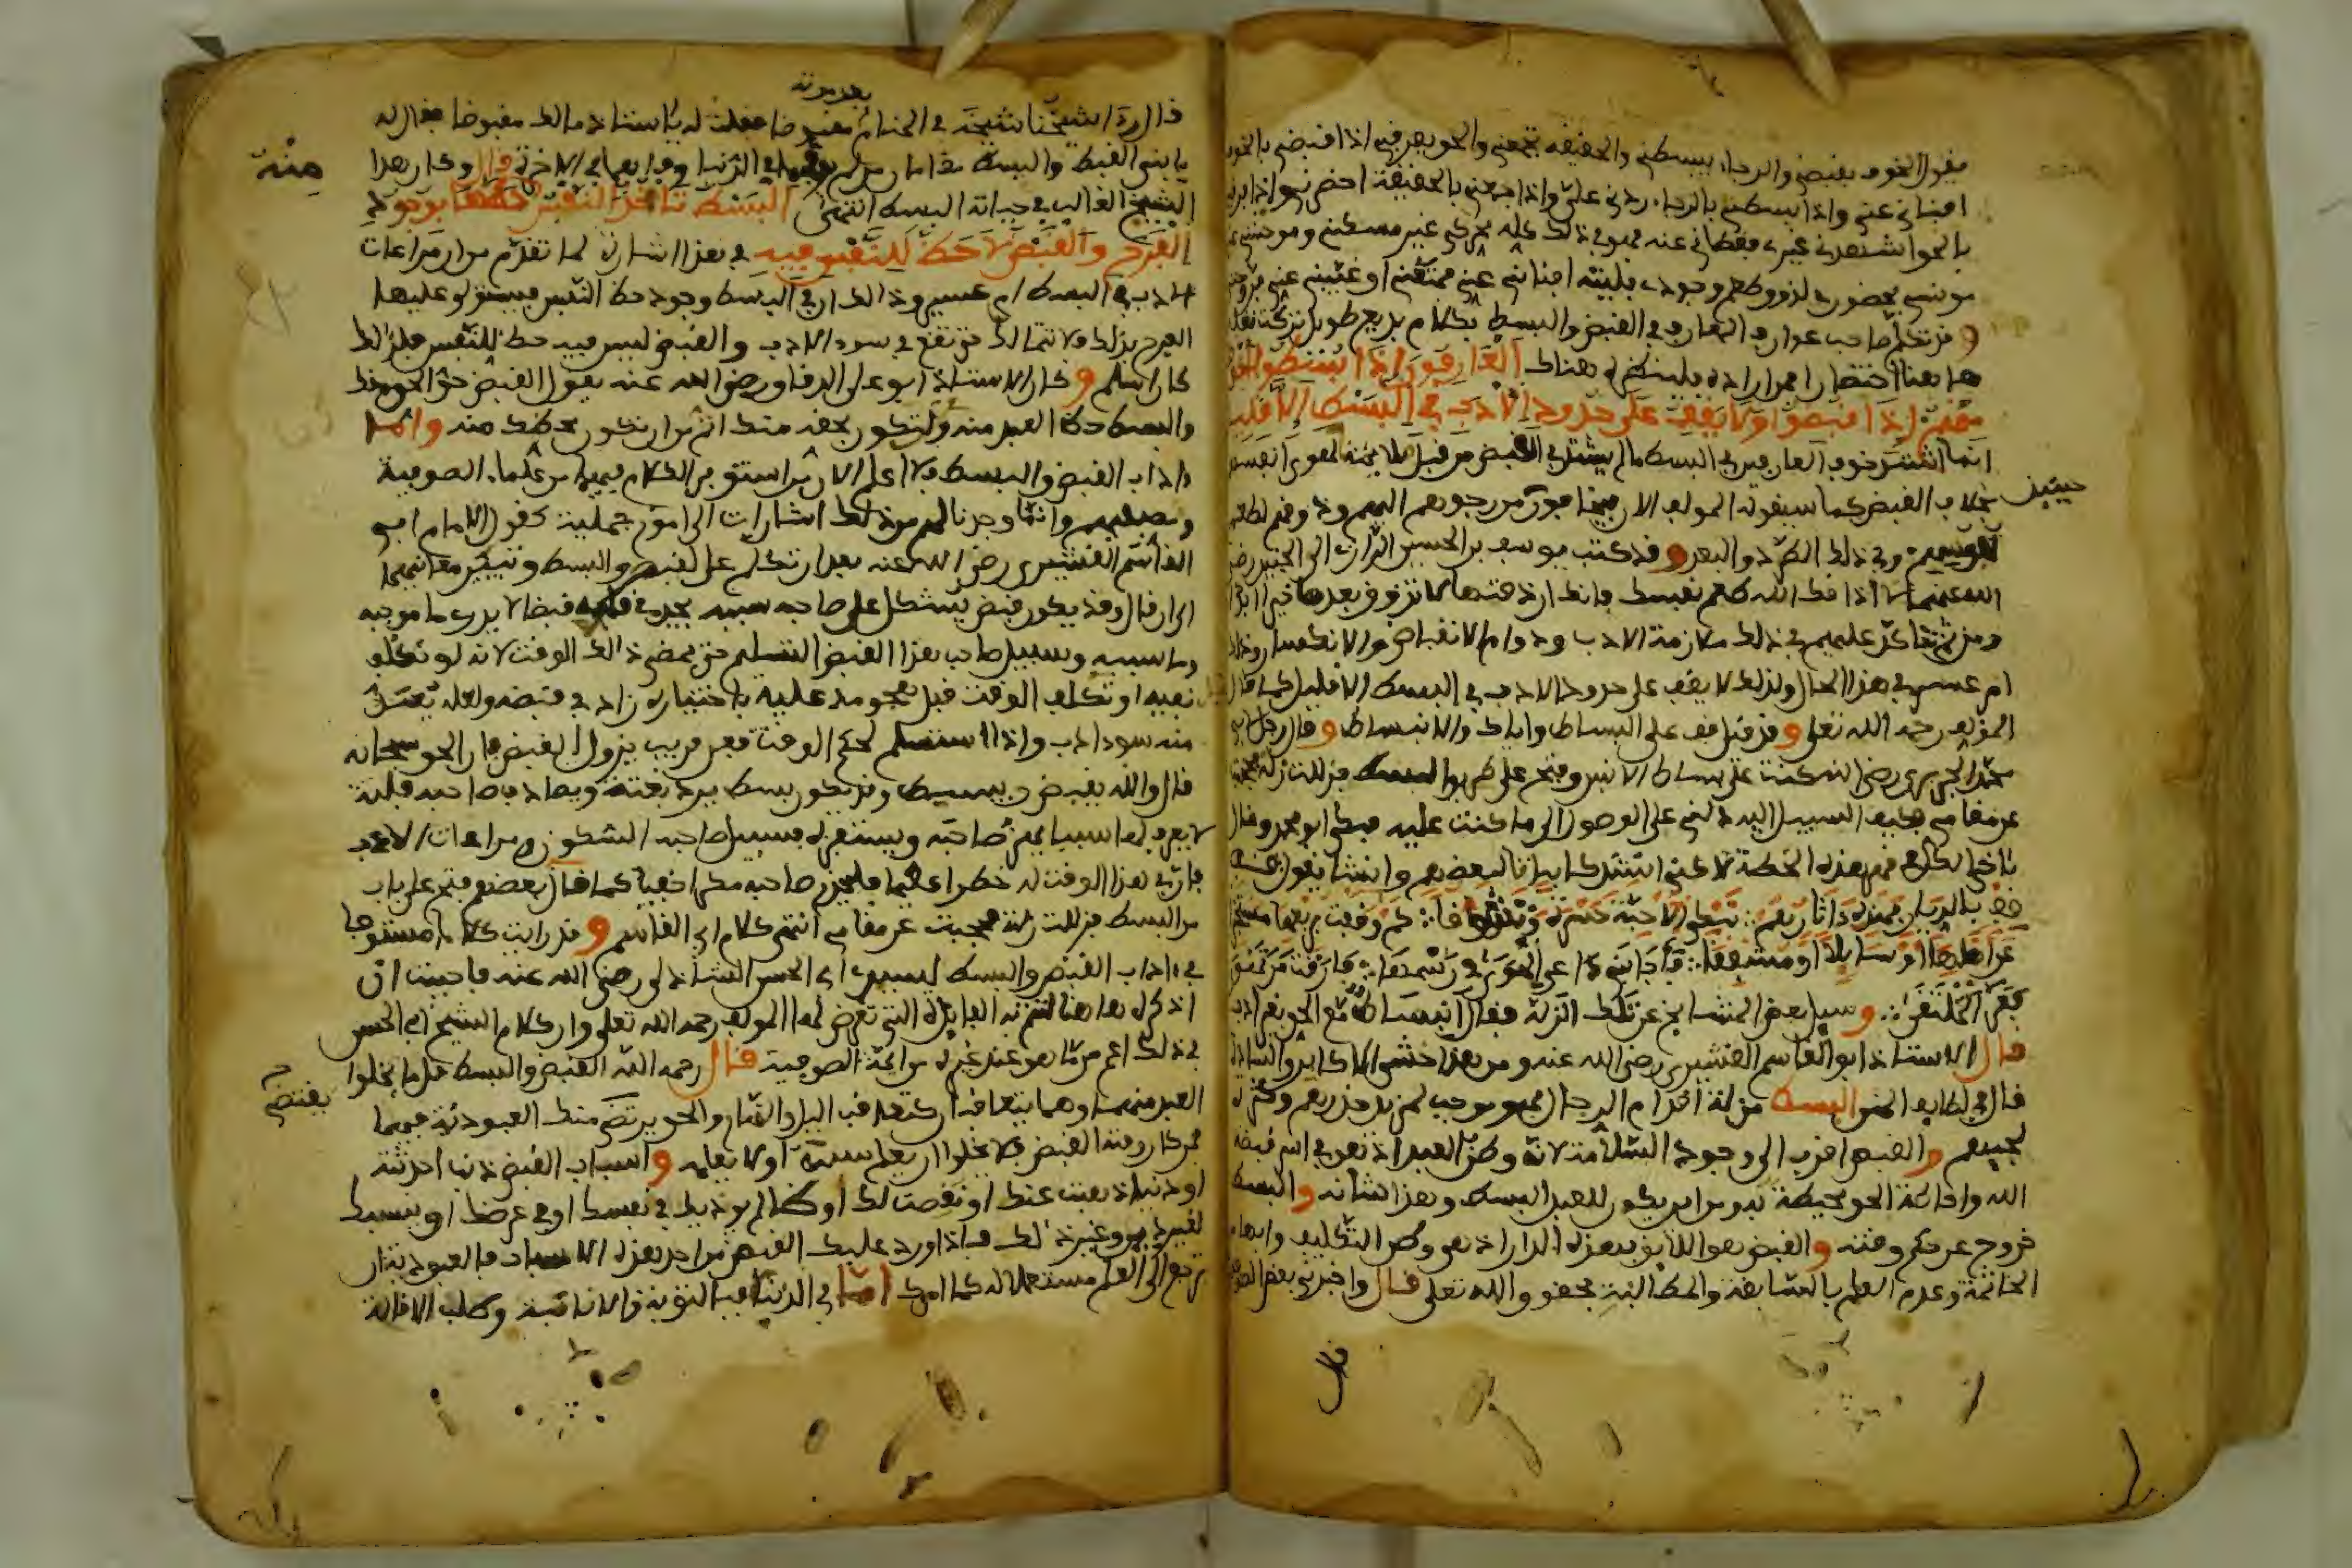 يقول الخوف يقبضني والرجاء يبسطني والحقيقة تجمعني والحق يفرقني اذا قبضني بالخوف
افناني عني واذا بسطني بالرجاء ردني علي واذا جمعني بالحقيقة احضرني واذا فرقني
بالحق اشهدني غيري فغطاني عنه فهو في ذلك كله محركي غير ممسكني وموحشني غير
مونسي بحضوري لذوق طعم وجودي فليته افناني عني فمتعني او غيبني عني فروحني
وقد تكلم صاحب عوارف المعارف في القبض والبسط بكلام بديع طويل تركت نقله
هاهنا اختصارا فمن اراده فلينظره هناك العارفون اذا بسطوا اخوف
منهم اذا قبضوا ولا يقف على حدود الادب في البسط الا قليل
انما اشتد خوف العارفين في البسط ما لم يشتد في القبض من قبل ملاءمته لهوى انفسهم
بخلاف القبض كما سيقوله المولف الان فيخافون من رجوعهم اليهم وذوقهم لطعم
حينئذ
نفوسهم وفي ذلك الطرد والبعد وقد كتب يوسف بن الحسين الرازي الى الجنيد رضي
الله عنهما لا اذاقك الله طعم نفسك فانك ان ذقتها لا تذوق بعدها خيرا ابدا
ومن ثم يتاكد عليهم في ذلك ملازمة الادب ودوام الانقباض والانكسار وذلك
امر عسير في هذا الحال ولذلك لا يقف على حدود الادب في البسط الا قليل كما قال
المولف رحمه الله تعلى وقد قيل قف على البساط واياك والانبساط وقال رجل لابي
محمد الجريري رضي الله كنت على بساط الانس وفتح علي طريق البسط فزللت زلة فحجبت
عن مقامي فكيف السبيل اليه دلني على الوصول الى ما كنت عليه فبكى ابو محمد وقال
يا اخي الكل في قهر هذه الخطة لاكني انشدك ابياتا لبعضهم وانشا يقول
قف بالديار فهذه اثارهم تبكي الاحبة حسرة وتشوقا كم وقفت بربعها مستخبرا
عن اهلها او سايلا او مشفقا فاجابني داعي الهوى في رسمها فارقت من تهوى
فعز الملتقى وسيل بعض المشايخ عن تلك الزلة فقال انبساط مع الحق بغير ادب
قال الاستاذ ابو القاسم القشيري رضي الله عنه ومن هذا خشي الاكابر والسادة
قال في لطايف المنن البسط مزلة اقدام الرجال فهو موجب لمزيد حذرهم وكثرة
لجيهم والقبض اقرب الى وجود السلامة لانه وطن العبد اذ هو في اسر قبضة
الله واحاطة الحق محيطة به ومن اين يكون للعبد البسط وهذا شانه والبسط
خروج عن حكم وقته والقبض هو اللايق بهذه الدار اذ هي وطن التكليف وابهام
الخاتمة وعدم العلم بالسابقة والمطالبة بحقوق الله تعلى قال واخبرني بعض الصوفية
قال
قال راى شيخنا شيخه في المنام مقبوضا فقلت له يا استاذ مالك مقبوضا فقال له
بعد موته
يا بني القبض والبسط مقامان من لم يوفهما في الدنيا وفاهما في الاخرة قال وكان هذا
الشيخ الغالب في حياته البسط انتهى البسط تاخذ النفس حظها بوجود
منه
الفرح والقبض لا حظ للنفس فيه في هذا اشارة لما تقدم من ان مراعات
الادب في البسط امر عسير وذالك ان في البسط وجود حظ النفس فيستولي عليها
الفرح بذلك فلا تتمالك حتى تقع في سوء الادب والقبض ليس فيه حظ للنفس فلذلك
كان اسلم وكان الاستاذ ابو علي الدقاق رضي الله عنه يقول القبض حق الحق منك
والبسط حظ العبد منه ولئن تكون بحقه منك اتم من ان تكون بحظك منه واما
اداب القبض والبسط فلا اعلم الان من استوفى الكلام فيها من علماء الصوفية
ومصنفيهم وانما وجدنا لهم من ذلك اشارات الى امور جملية كقول الامام ابي
القاسم القشيري رضي الله عنه بعد ان تكلم على القبض والبسط وتبيين معانيهما
الى ان قال وقد يكون قبض يشكل على صاحبه سببه يجد في قلبه قبضا لا يدرى ما موجبه
وما سببه وسبيل صاحب هذا القبض التسليم حتى يمضي ذالك الوقت لانه لو تكلف
نفيه او تكلف الوقت قبل هجومه عليه باختياره زاد في قبضه ولعله يعد
منه سوء ادب واذا استسلم لحكم الوقت فعن قريب يزول القبض فان الحق سبحانه
قال والله يقبض ويبسط وقد يكون بسط يرد بغتة ويصادف صاحبه فلتة
لا يعرف لها سببا يهز صاحبه ويستفزه فسبيل صاحبه السكون ومراعات الادب
فان في هذا الوقت له خطرا عظيما فليحذر صاحبه مكرا خفيا كما قال بعضهم فتح علي باب
من البسط فزللت زلة فحجبت عن مقامي انتهى كلام ابي القاسم وقد رايت كلاما مستوفا
في اداب القبض والبسط لسيدي ابي الحسن الشاذلي رضي الله عنه فاحببت ان
اذكره هاهنا لتتم به الفايدة التي تعرض لها المولف رحمه الله تعلى وان كلام الشيخ ابي الحسن
في ذلك اعم مما هو عند غيره من ايمة الصوفية قال رحمه الله القبض والبسط قل ما يخلوا
العبد منهما وهما يتعاقبان كتعاقب اليل والنهار والحق يرتضي منك العبودية فيهما
يقتضي
فمن كان وقته القبض فلا يخلوا ان يعلم سببه او لا يعلمه واسباب القبض ذنب احدثته
او دنيا ذهبت عنك او نقصت لك او ظالم يوذيك في نفسك او في عرضك او ينسبك
لغير دين وغير ذلك فاذا ورد عليك القبض من احد هذه الاسباب فالعبودية ان
ترجع الى العلم مستعملا له كما امرك اما في الذنب فبالتوبة والانابة وطلب الاقالة